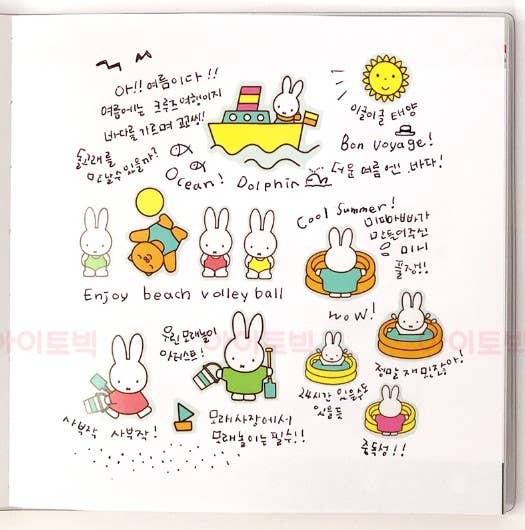 아!! 여름이다!!
여름에는 크루즈여행이지
바다를 가르며 꼬씽!!
돌고래를
만날수 있을까?
Ocean! Dolphin
이글이글 태양
Bon Voyage!
더운 여름엔 바다!
Enjoy beach volley ball
Cool Summer!
미피아빠가
만들어주신
미니
풀장!!
WOW!
정말 재밌잖아!
우린 모래놀이
아티스트!
사부작 사부작!
모래사장에서
모래놀이는 필수!!
24시간 있을수도
있을듯
중독성!!
아이토빅
이토빅